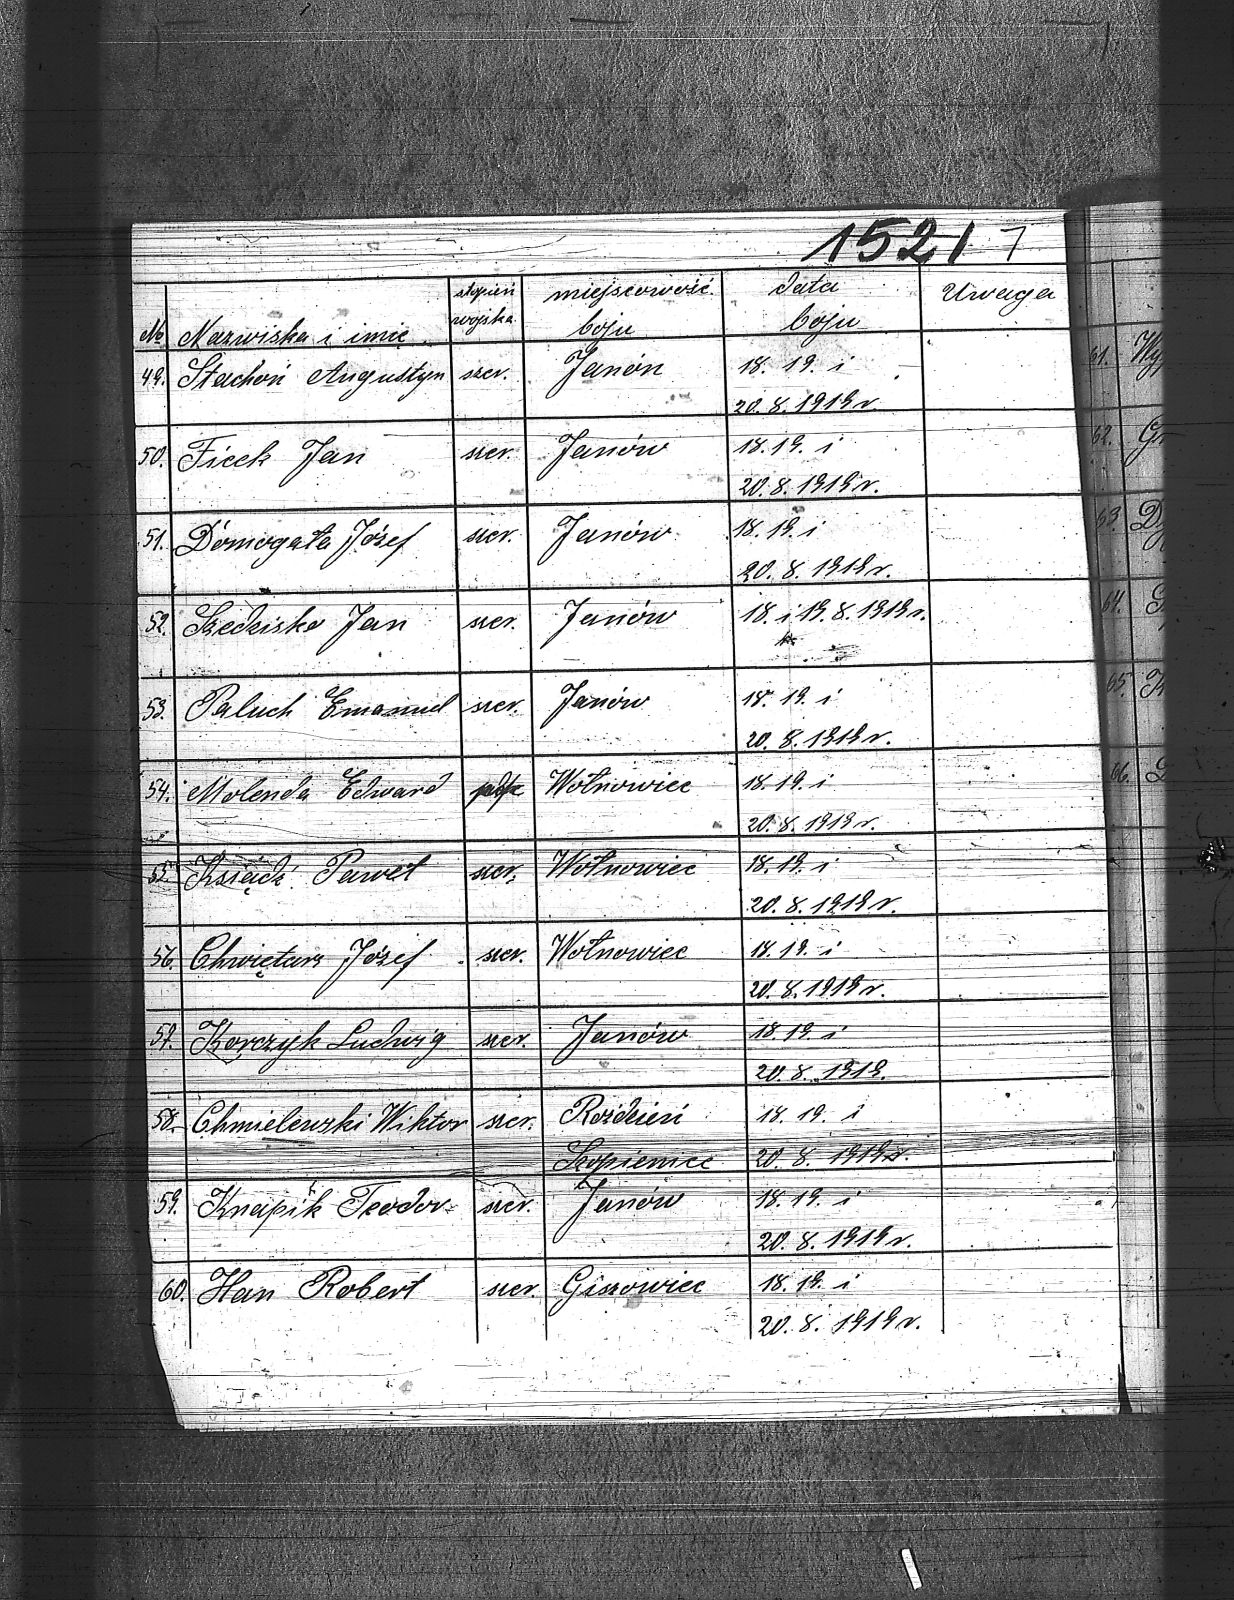 1521 7
№ Nazwiska i imię stopień wojska miejscowość boju Data boju Uwaga
49. Stachoń Augustyn szer. Janón 18. 19. i
20. 8. 1919 r.
50. Ficek Jan szer. Janów 18. 19. i
20. 8. 1919 r.
51. Domogała Józef szer. Janów 18. 19. i
20. 8. 1919 r.
52. Szedzisko Jan szer. Janów 18. i 19. 8. 1919 r.
53. Paluch Emanuel szer. Janów 18. 19. i
20. 8. 1919 r.
54. Molenda Edward Wołnowiec 18. 19. i
20. 8. 1919 r.
55. Ksiądź Paweł szer. Wołnowiec 18. 19. i
20. 8. 1919 r.
56. Chwiętars Józef szer. Wołnowiec 18. 19. i
20. 8. 1919 r.
57. Korczyk Ludwig szer. Janów 18. 19. i
20. 8. 1919.
58. Chmielewski Wiktor szer. Roździeń 18. 19. i
Szopienice 20. 8. 1919 r.
59. Knapik Teodor szer. Janów 18. 19. i
20. 8. 1919 r.
60. Han Robert szer. Giszowiec 18. 19. i
20. 8. 1919 r.
61.
62.
63.
64.
65.
66.